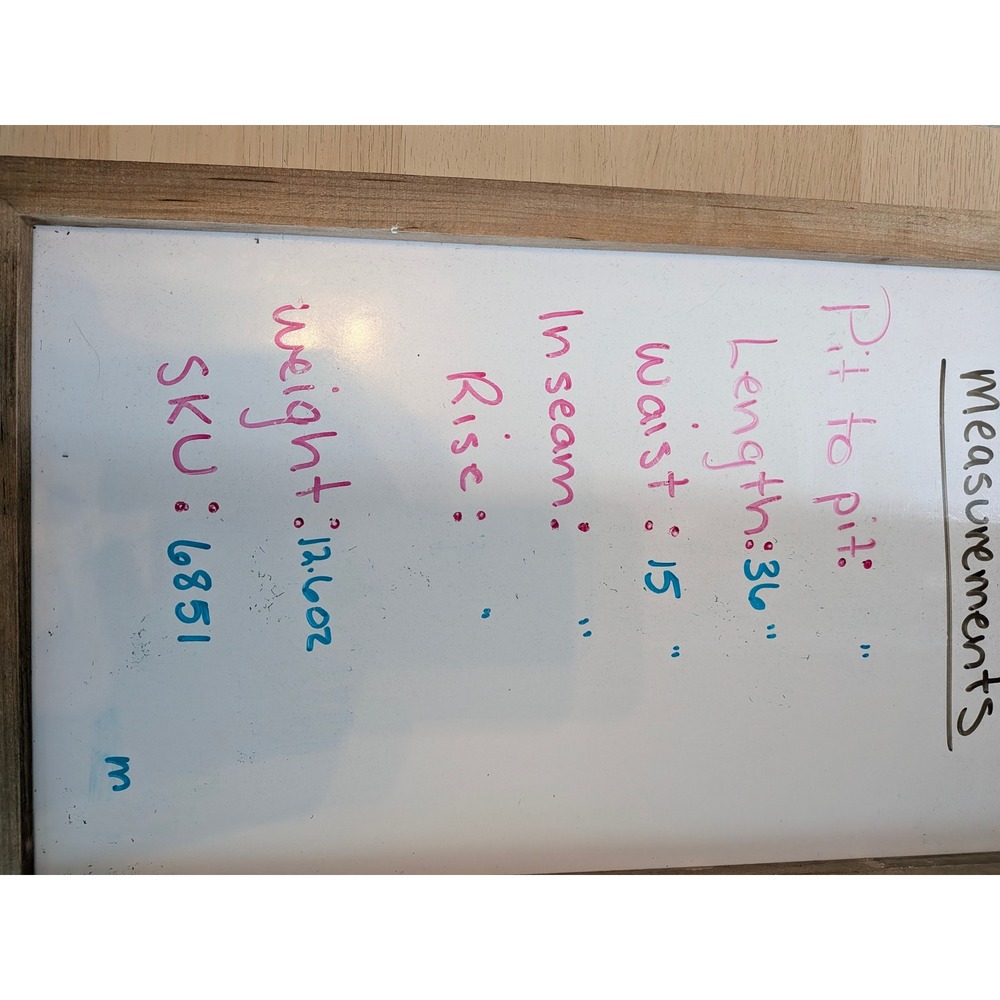 Measurements
Pit to pit: "
Length: 36"
Waist: 15 "
Inseam: "
Rise: "
Weight: 12.6oz
SKU: 6851
m